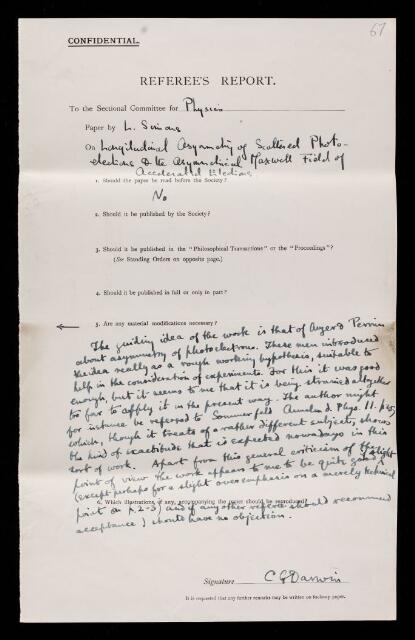 67
CONFIDENTIAL.
REFEREE'S REPORT.
To the Sectional Committee for Physics
Paper by L. Simons
On Longitudinal Asymmetry of Scattered Photo-
electrons & the Asymmetrical Maxwell Field of
Accelerated Electrons
1. Should the paper be read before the Society?
No
2. Should it be published by the Society?
3. Should it be published in the "Philosophical Transactions" or the "Proceedings"?
(See Standing Orders on opposite page.)
4. Should it be published in full or only in part?
5. Are any material modifications necessary?
The guiding idea of the work is that of Auger & Perrin
about asymmetry of photoelectrons. These men introduced
the idea really as a rough working hypothesis, suitable to
help in the consideration of experiments. For this it was good
enough, but it seems to me that it is being strained altogether
too far to apply it in the present way. The author might
for instance be referred to Sommerfeld Annalen d. Phys. 11. p
which, though it treats of a rather different subject, shows
the kind of exactitude that is expected nowadays in this
sort of work. Apart from this general criticism of the
point of view the work appears to me to be quite good
(except perhaps for a slight overemphasis on a merely technical
6. Which illustrations, if any, accompanying the paper should be reproduced?
point on p. 2-3) and if any other referee should recommend
acceptance I should have no objection.
Signature C G Darwin
It is requested that any further remarks may be written on foolscap paper.